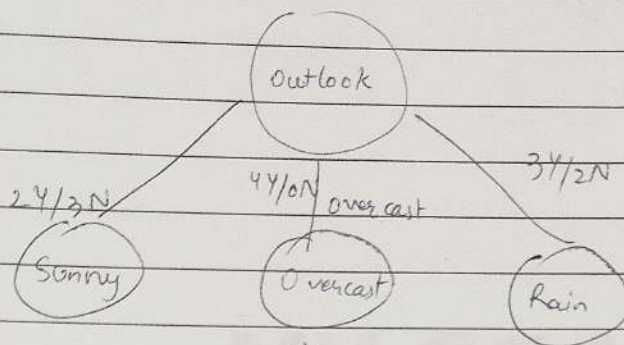 Outlook
2Y/3N
4Y/0N
overcast
3Y/2N
Sunny
Overcast
Rain